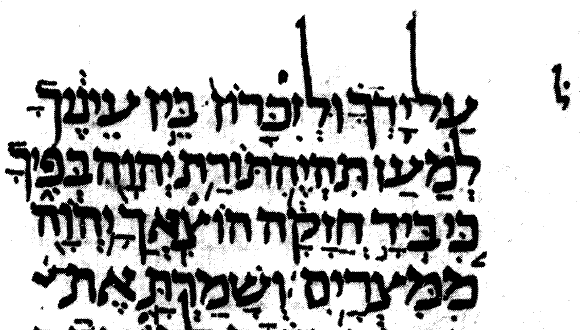 עַל יָדְךָ וּלְזִכָּרוֹן בֵּין עֵינֶיךָ
לְמַעַן תִּהְיֶה תּוֹרַת יְהוָה בְּפִיךָ
כִּי בְּיָד חֲזָקָה הוֹצִאֲךָ יְהוָה
מִמִּצְרָיִם וְשָׁמַרְתָּ אֶת